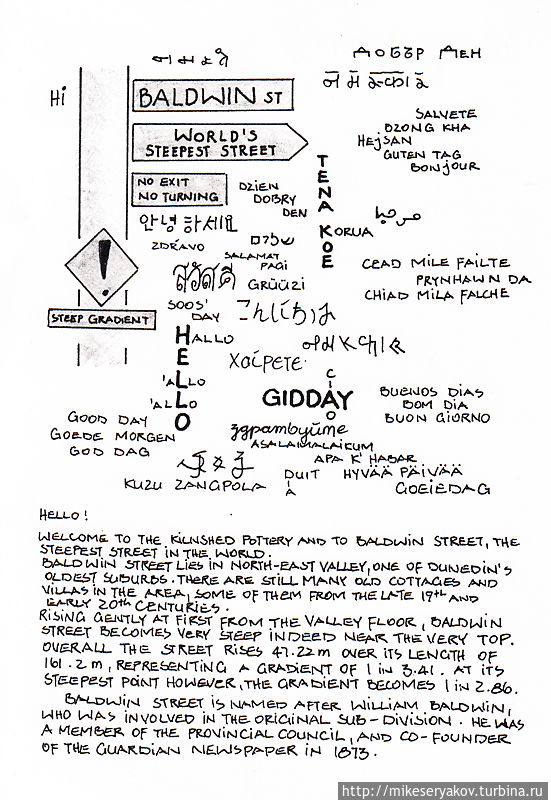 ДОБЪР ДЕН
Hi
BALDWIN ST
WORLD'S
STEEPEST STREET
NO EXIT
NO TURNING
SALVETE
DZONG KHA
HEJSAN
GUTEN TAG
BONJOUR
TENA KOE
DZIEN
DOBRY
DEN
안녕하세요
KORUA
مرحبا
ZDRAVO
שלום
SALAMAT
PAGI
สวัสดี
GRÜÜZI
CEAD MILE FAILTE
PRYNHAWN DA
CHIAD MILA FALCHE
!
STEEP GRADIENT
SOOS'
DAY
こんにちは
HELLO
HALLO
Χαίρετε
'ALLO
'ALLO
CIAO
GIDDAY
BUENOS DIAS
BOM DIA
BUON GIORNO
GOOD DAY
GOEDE MORGEN
GOD DAG
здравствуйте
ASALAMALAIKUM
APA K' HABAR
KUZU ZANGPOLA
DUIT
HYVÄÄ PÄIVÄÄ
GOEIEDAG
HELLO!
WELCOME TO THE KILNSHED POTTERY AND TO BALDWIN STREET, THE
STEEPEST STREET IN THE WORLD.
BALDWIN STREET LIES IN NORTH-EAST VALLEY, ONE OF DUNEDIN'S
OLDEST SUBURBS. THERE ARE STILL MANY OLD COTTAGES AND
VILLAS IN THE AREA, SOME OF THEM FROM THE LATE 19TH AND
EARLY 20TH CENTURIES.
RISING GENTLY AT FIRST FROM THE VALLEY FLOOR, BALDWIN
STREET BECOMES VERY STEEP INDEED NEAR THE VERY TOP.
OVERALL THE STREET RISES 47.22m OVER ITS LENGTH OF
161.2m, REPRESENTING A GRADIENT OF 1 IN 3.41. AT ITS
STEEPEST POINT HOWEVER, THE GRADIENT BECOMES 1 IN 2.86.
BALDWIN STREET IS NAMED AFTER WILLIAM BALDWIN,
WHO WAS INVOLVED IN THE ORIGINAL SUB-DIVISION. HE WAS
A MEMBER OF THE PROVINCIAL COUNCIL, AND CO-FOUNDER
OF THE GUARDIAN NEWSPAPER IN 1873.
http://mikeseryakov.turbina.ru/